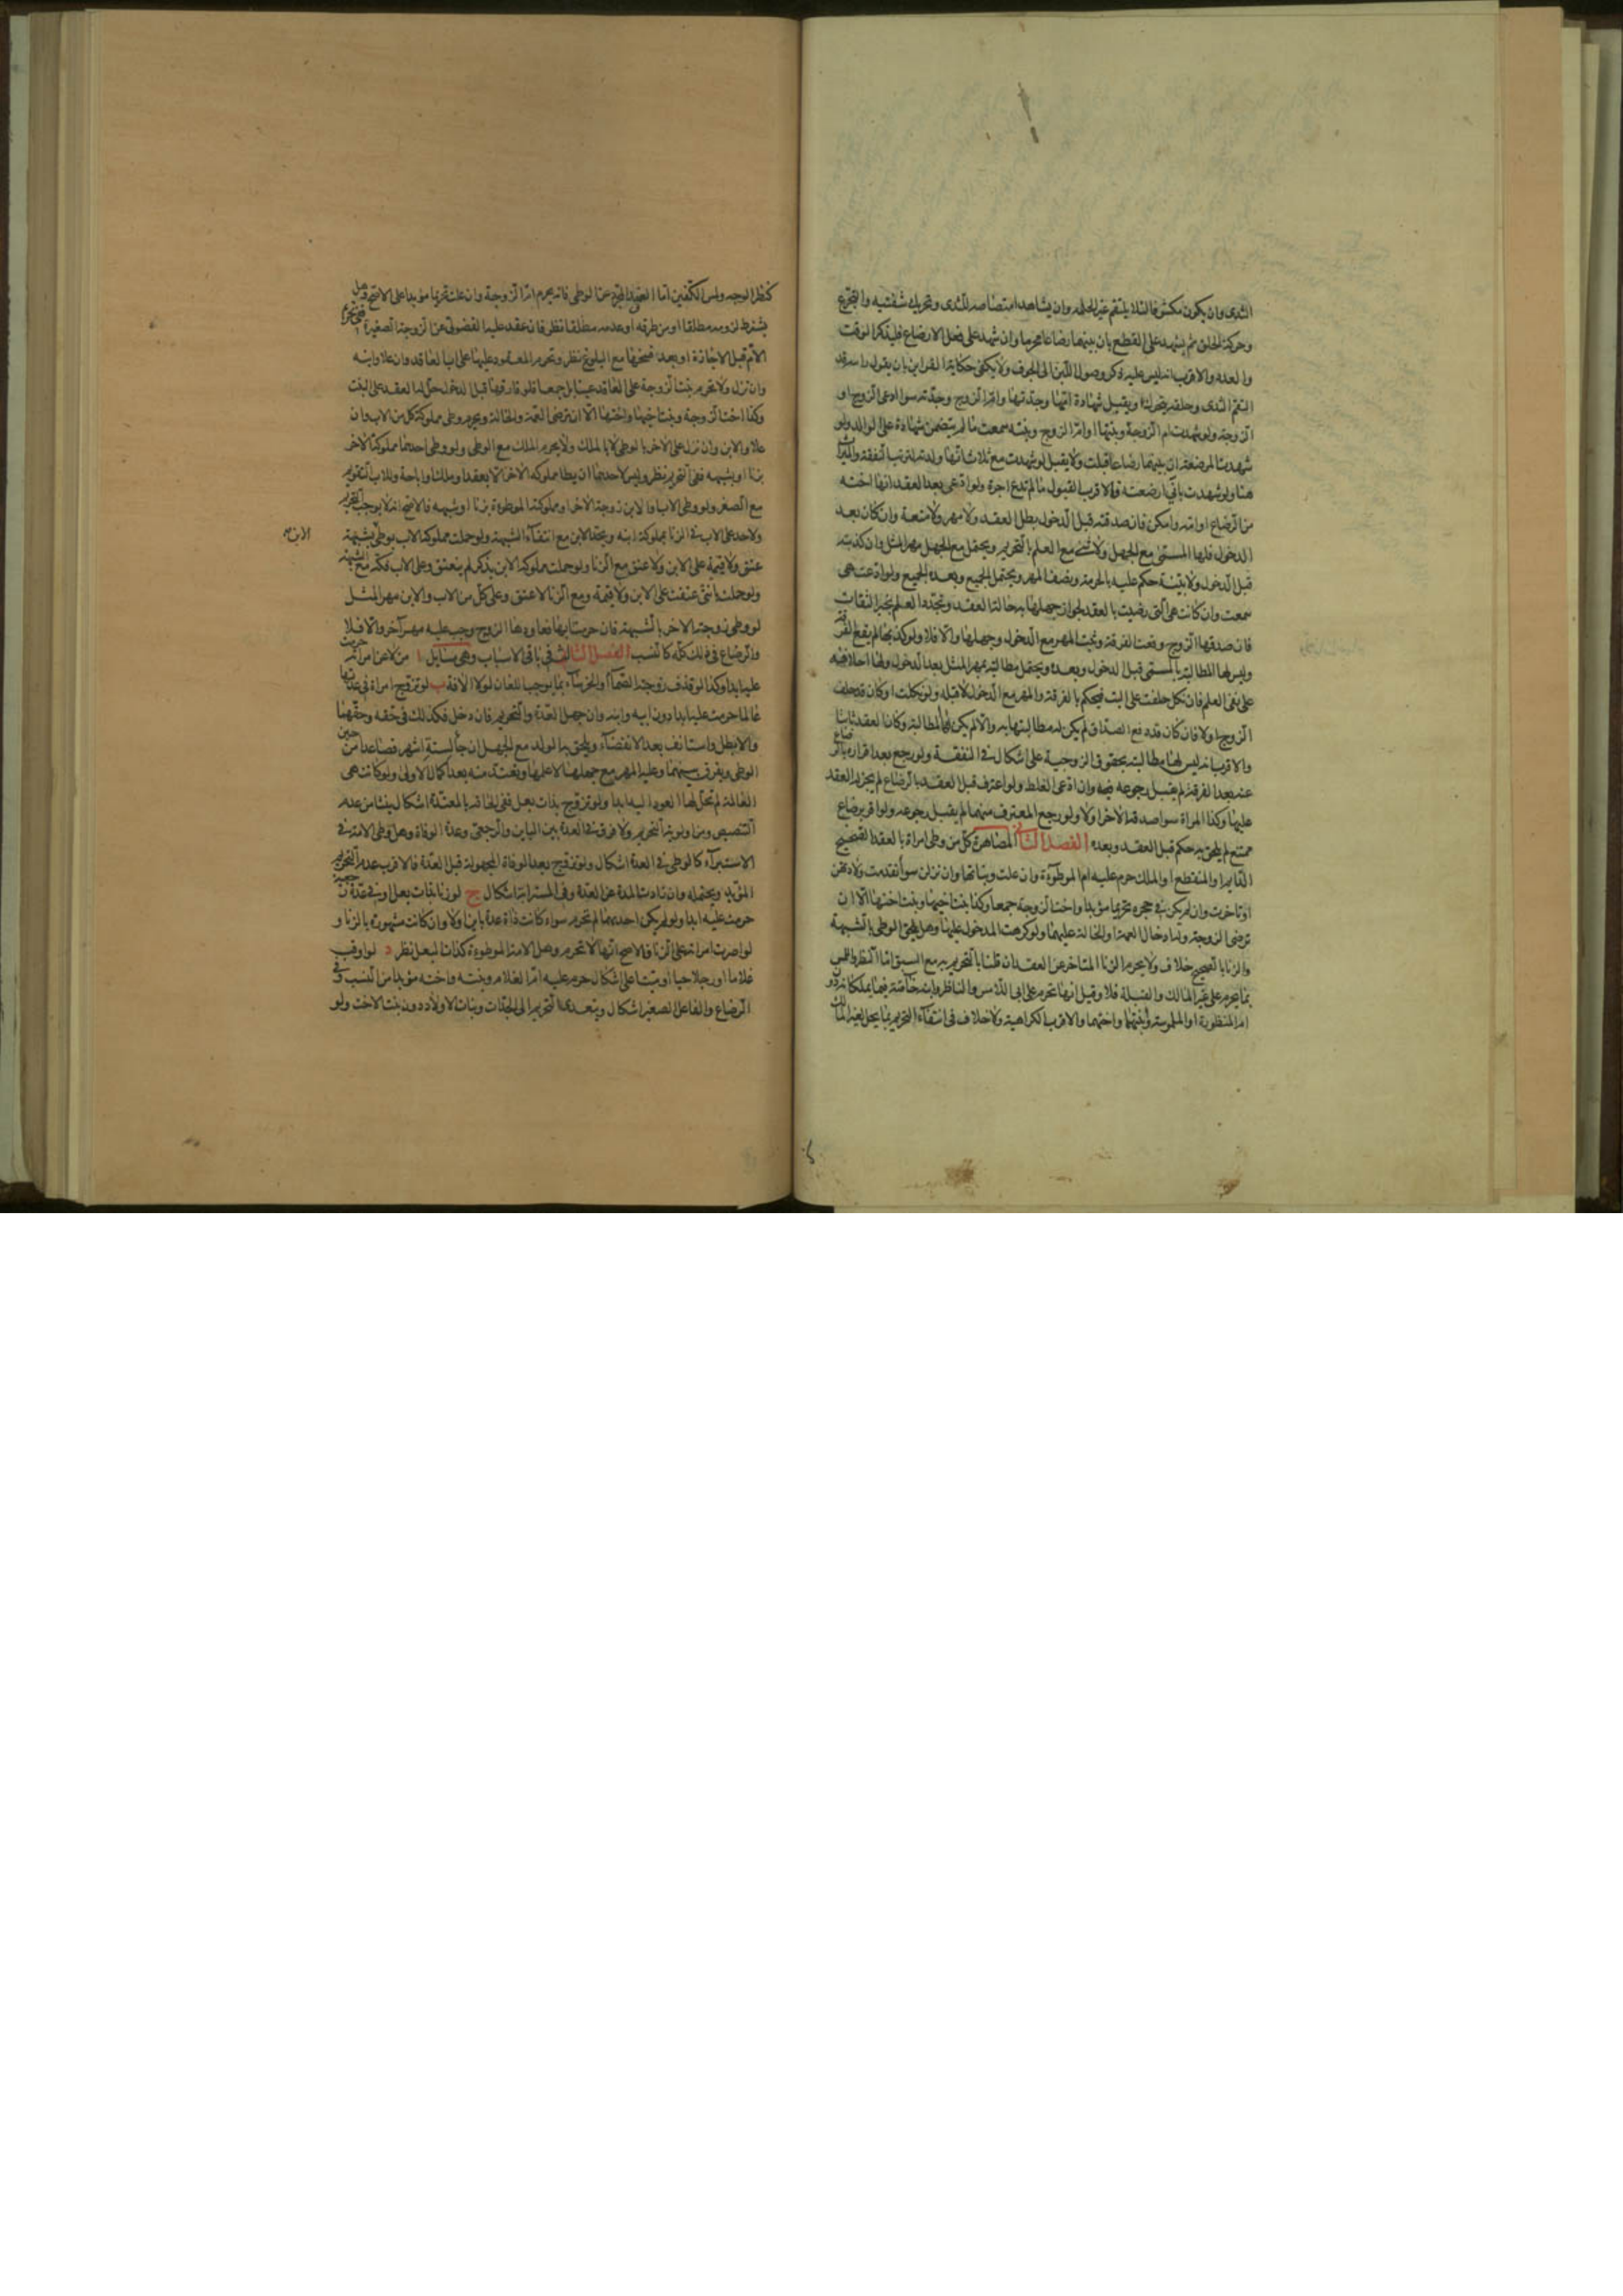 الثدى وان يكون مكشوفا لئلا يلتقم غير الحلمة وان يشاهد امتصاصه للثدى وتحريك شفتيه والتجرع
وحركة الحلق ثم يشهد على القطع بان بينهما رضاعا محرما وان شهد على فعل الارضاع فليذكر الوقت
والعدد والاقرب انه ليس عليه ذكر وصول اللبن الى الجوف ولا يكفى حكاية القراين بان يقول راىته قد
التقم الثدى وحلقه يتحرك ويقبل شهادة امها وجدتها وام الزوج وجدته سوا ادعى الزوج او
الزوجة ولو شهدت ام الزوجة وبنتها او ام الزوج وبنته سمعت ما لم يتضمن شهادة على الوالد ولو
شهدت المرضعة ان بينهما رضاعا قبلت ولا يقبل لو شهدت مع ثلاث انها ولدته لترتب النفقة والميراث
هنا ولو شهدت بانى ارضعته فالاقرب القبول ما لم تدع اجرة ولو ادعى بعد العقد انها اخته
من الرضاع او امه وامكن فان صدقته قبل الدخول بطل العقد ولا مهر ولا متعة وان كان بعد
الدخول فلها المسمى مع الجهل ولا شئ مع العلم بالتحريم ويحتمل مع الجهل مهر المثل وان كذبته
قبل الدخول ولا بينة حكم عليه بالحرمة وبنصف المهر ويحتمل الجميع وبعده الجميع ولو ادعت هى
سمعت وان كانت هى التى رضيت بالعقد لجواز جهلها به حالة العقد وتجدد العلم بخبر الثقات
فان صدقها الزوج وقعت الفرقة وثبت المهر مع الدخول وجهلها والا فلا ولو كذبها لم يقع الفرقة
وليس لها المطالبة بالمسمى قبل الدخول وبعده ويحتمل مطالبته بمهر المثل بعد الدخول ولها احلافه
على نفى العلم فان نكل حلفت على البت فيحكم بالفرقة والمهر مع الدخول لا قبله ولو نكلت او كان قد حلف
الزوج اولا فان كان قد دفع الصداق لم يكن له مطالبتها به والا لم يكن لها المطالبة وكان العقد ثابتا
والاقرب انه ليس لها مطالبته بحقوق الزوجية على اشكال فى النفقة ولو رجع بعد اقراره بالرضاع
عنه بعد الفرقة لم يقبل رجوعه فيه وان ادعى الغلط ولو اعترف قبل العقد بالرضاع لم يجز له العقد
عليها وكذا المراة سوا صدقه الاخر اولا ولو رجع المعترف منهما لم يقبل رجوعه ولو اقر برضاع
ممتنع لم يلحق به حكم قبل العقد وبعده الفصل الثانى المصاهرة كل من وطى امراة بالعقد الصحيح
الدايم او المنقطع او الملك حرم عليه ام الموطوءة وان علت وبناتها وان نزلن سوا تقدمت ولادتهن
او تاخرت وان لم يكن فى حجره تحريما مؤبدا واخت الزوجة جمعا وكذا بنت اخيها وبنت اختها الا ان
ترضى الزوجة وله ادخال العمة او الخالة عليهما ولو كرهت المدخول عليها وهل يلحق الوطى بالشبهة
والزنا بالصحيح خلاف ولا يحرم الزنا المتاخر عن العقد ان قلنا بالتحريم به مع السبق اما النظر واللمس
بما يحرم على غير المالك والقبلة فلا وقيل انها تحرم على ابى اللامس والناظر وابنه خاصة فيما يملكانه دون
ام المنظورة او الملموسة وبنتهما واختهما والاقرب الكراهية ولا خلاف فى انتفاء التحريم بما يحل لغير المالك
كنظر الوجه ولمس الكفين اما العقد المجرد عن الوطى فانه يحرم ام الزوجة وان علت تحريما مؤبدا على الاصح وهل
يشترط لزومه مطلقا او من طرفه او عدمه مطلقا نظر فان عقد عليه الفضولى عن الزوجة الصغيرة ففى تحريم
الام قبل الاجازة او بعد فسخها مع البلوغ نظر وتحرم المعقود عليها على اب العاقد وان علا وابنه
وان نزل ولا تحرم بنت الزوجة على العاقد عينا بل جمعا فلو فارقها قبل الدخول حل له العقد على البنت
وكذا اخت الزوجة وبنت اخيها واختها الا ان ترضى العمة والخالة ويحرم وطى مملوكة كل من الاب وان
علا والابن وان نزل على الاخر بالوطى لا بالملك ولا يحرم الملك مع الوطى ولو وطى احدهما مملوكة الاخر
بزنا او شبهة ففى التحريم نظر وليس لاحدهما ان يطا مملوكة الاخر الا بعقد او ملك او اباحة وللاب التقويم
مع الصغر ولو وطى الاب والابن زوجة الاخر او مملوكته الموطوءة بزنا او شبهة فالاصح انه لا يوجب التحريم
ولا حد على الاب فى الزنا بمملوكة ابنه ويحد الابن مع انتفاء الشبهة ولو حملت مملوكة الاب بوطى بشبهة
الابن
عتق ولا قيمة على الابن ولا عتق مع الزنا ولو حملت مملوكة الابن بذكر لم ينعتق وعلى الاب فكه مع الشبهة
ولو حملت بانثى عتقت على الابن ولا قيمة ومع الزنا لا عتق وعلى كل من الاب والابن مهر المثل
لو وطى زوجة الاخر بالشبهة فان حرمنا بها فعاودها الزوج وجب عليه مهر آخر والا فلا
والرضاع فى ذلك كله كالنسب الفصل الثالث فى باقى الاسباب وهى مسايل ا من لاعن امراته حرمت
عليه ابدا وكذا لو قذف زوجته الصماء والخرساء بما يوجب اللعان لولا الافة ب لو تزوج امراة فى عدتها
عالما حرمت عليه ابدا دون ابيه وابنه وان جهل العدة والتحريم فان دخل فكذلك فى حقه وحقهما
والا بطل واستانف بعد الانقضاء ويلحق به الولد مع الجهل ان جاء لستة اشهر فصاعدا من حين
الوطى ويفرق بينهما وعليه المهر مع جهلها لا علمها وتعتد منه بعد اكمال الاولى ولو كانت هى
العالمة لم تحل لها العود اليه ابدا ولو تزوج بذات بعل ففى الحاقه بالمعتدة اشكال ينشا من عدم
التنصيص ومن اولوية التحريم ولا فرق فى العدة بين الباين والرجعى وعدة الوفاة وهل وطى الامة فى
الاستبراء كالوطى فى العدة اشكال ولو تزوج بعد الوفاة المجهولة قبل العدة فالاقرب عدم التحريم
المؤبد ويحتمله وان زادت المدة عن العدة وفى المسترابة اشكال ج لو زنا بذات بعل او فى عدة رجعية
حرمت عليه ابدا ولو لم يكن احدهما لم تحرم سواء كانت ذاة عدة باين اولا وان كانت مشهورة بالزنا و
لو اصرت امراته على الزنا فالاصح انها لا تحرم وهل الامة الموطوءة كذات البعل نظر د لو اوقب
غلاما او رجلا حيا او ميتا على اشكال حرم عليه ام الغلام وبنته واخته مؤبدا من النسب وفى
الرضاع والفاعل الصغير اشكال ويتعدى التحريم الى الجدات وبنات الاولاد دون بنت الاخت ولو